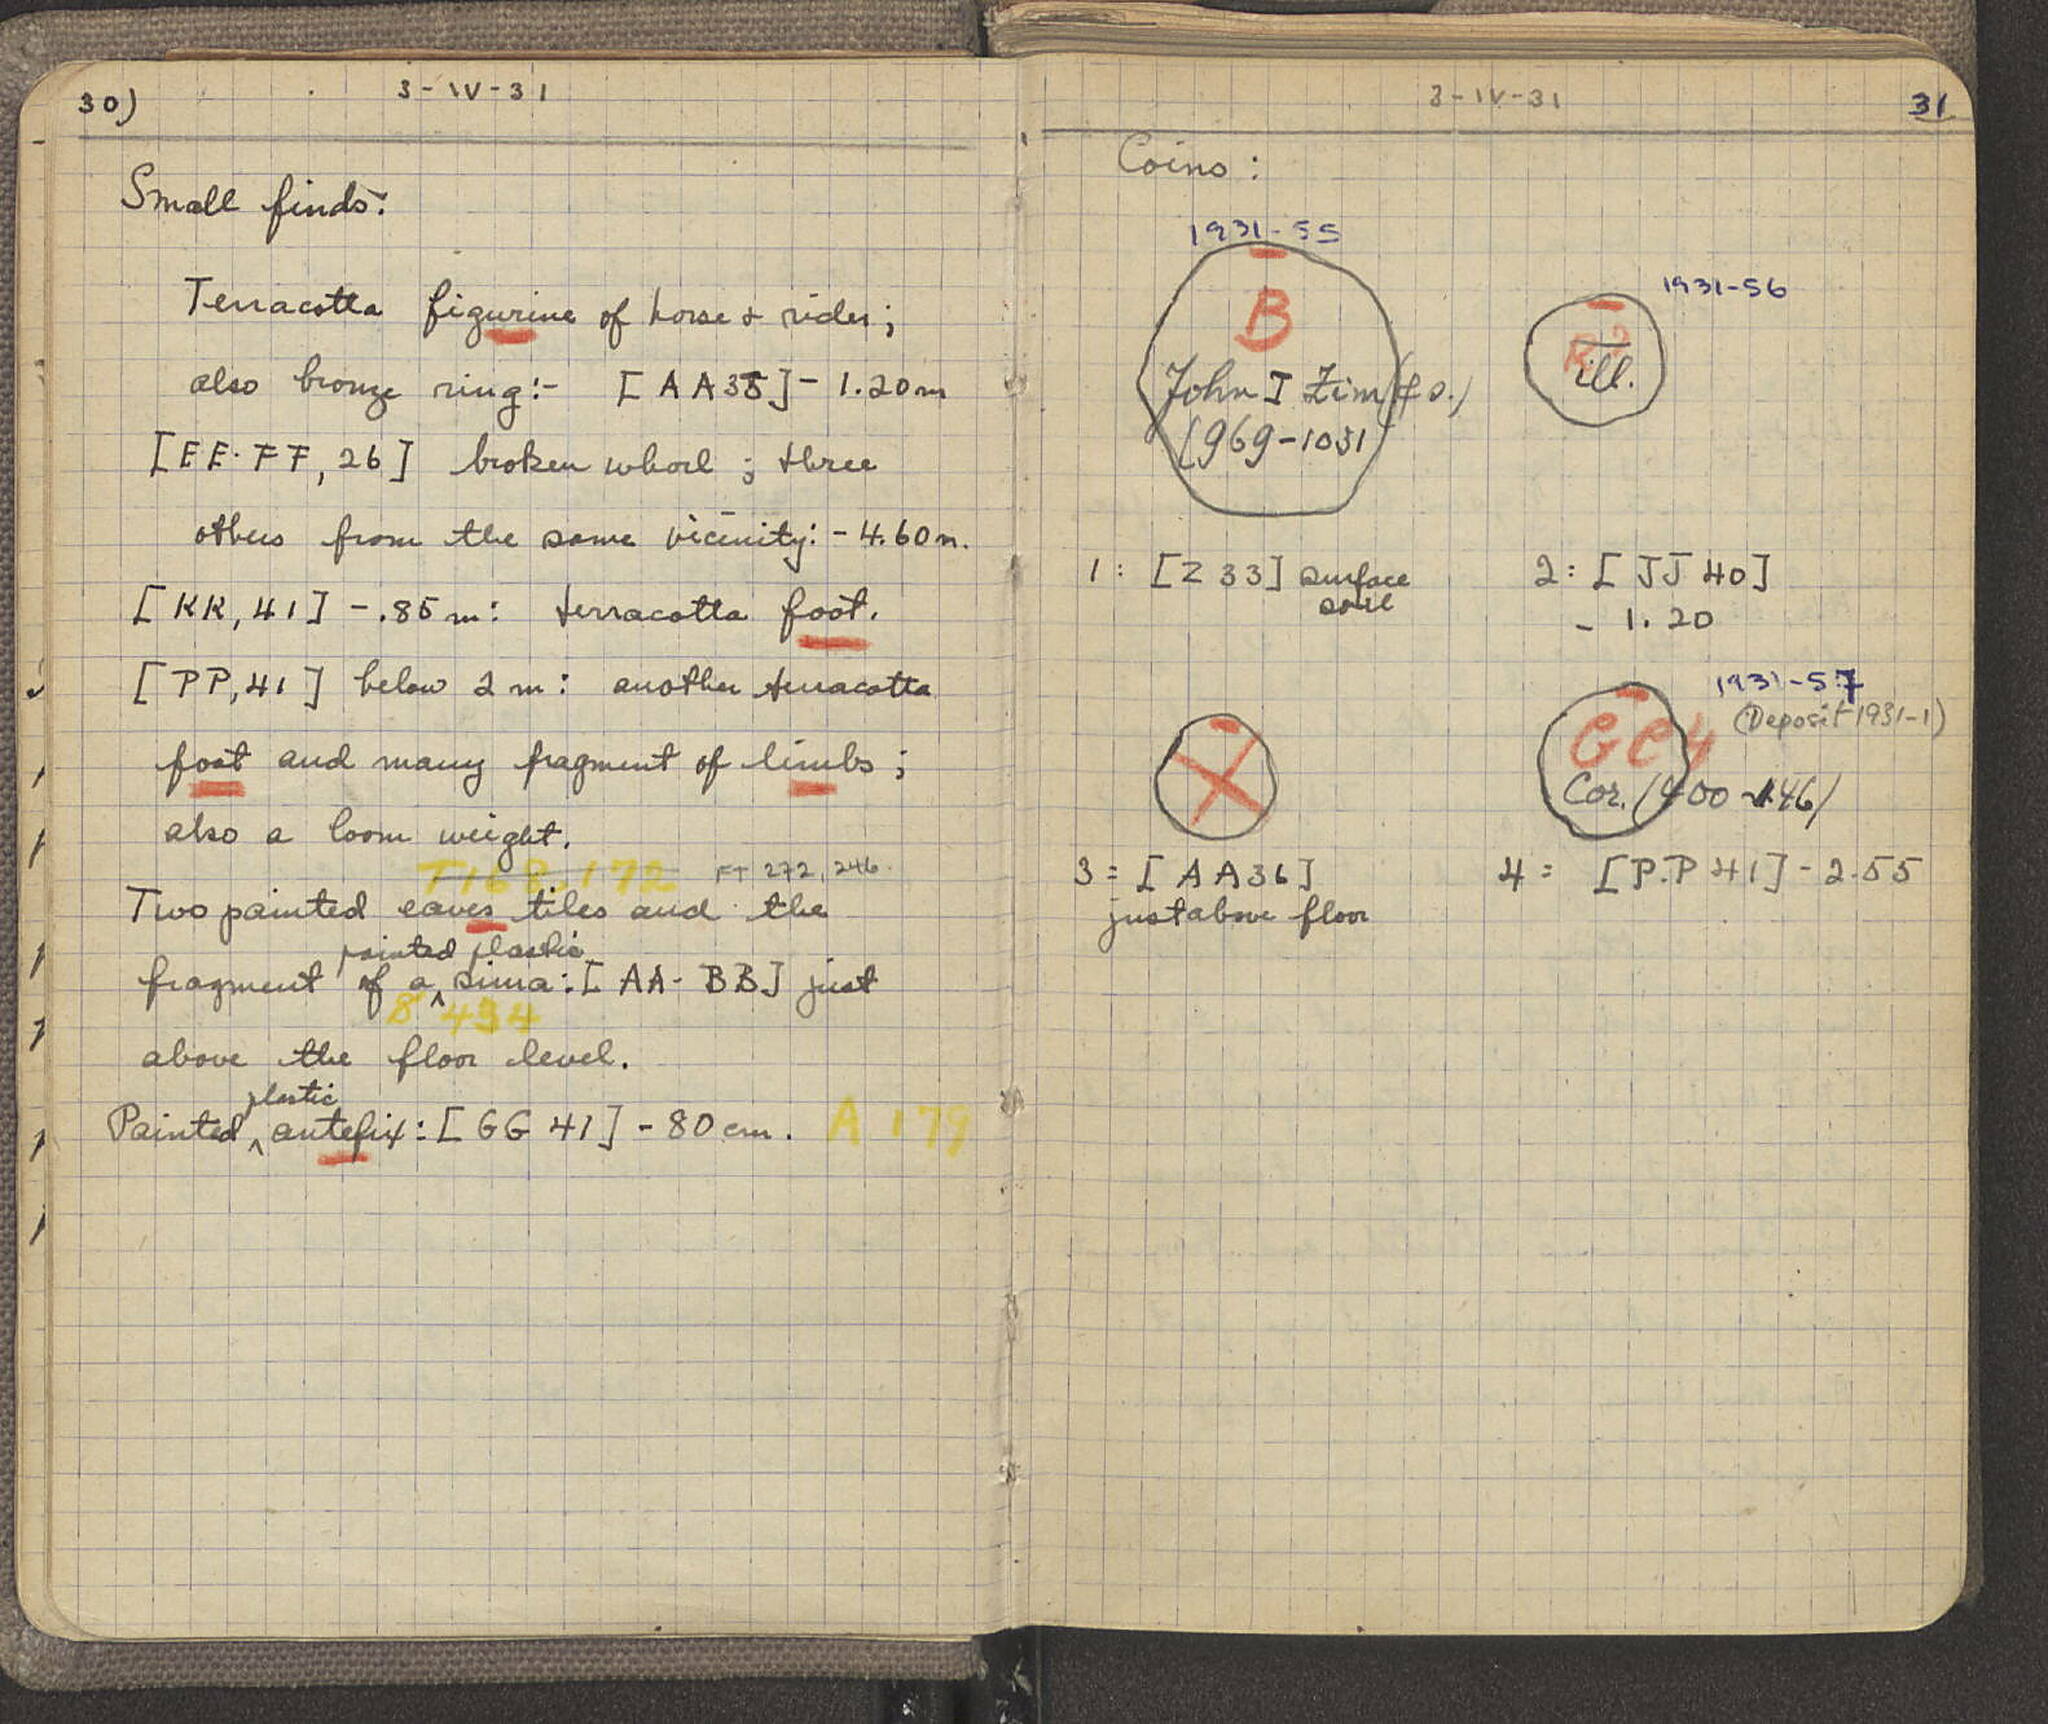 30)
3-IV-31
Small finds:
Terracotta figurine of horse & rider;
also bronze ring:- [AA35] - 1.20 m
[EE·FF, 26] broken whorl; three
others from the same vicinity: - 4.60 m.
[KK, 41] - .85 m: terracotta foot.
[PP, 41] below 2 m: another terracotta
foot and many fragment of limbs;
also a loom weight.
T168, 172 FT 272, 246
Two painted eaves tiles and the
painted plastic
fragment of a ^ sima: [AA-BB] just
434
above the floor level.
plastic
Painted ^ antefix: [GG 41] - 80 cm. A 179
3-IV-31
31
Coins:
1931-55
B
John I Zim
(969-1031
1931-56
ill.
1: [Z 33] surface
soil
2: [JJ 40]
- 1.20
1931-57
(Deposit 1931-1)
GC4
Cor. (400-146)
3= [AA36]
just above floor
4= [P.P 41] - 2.55